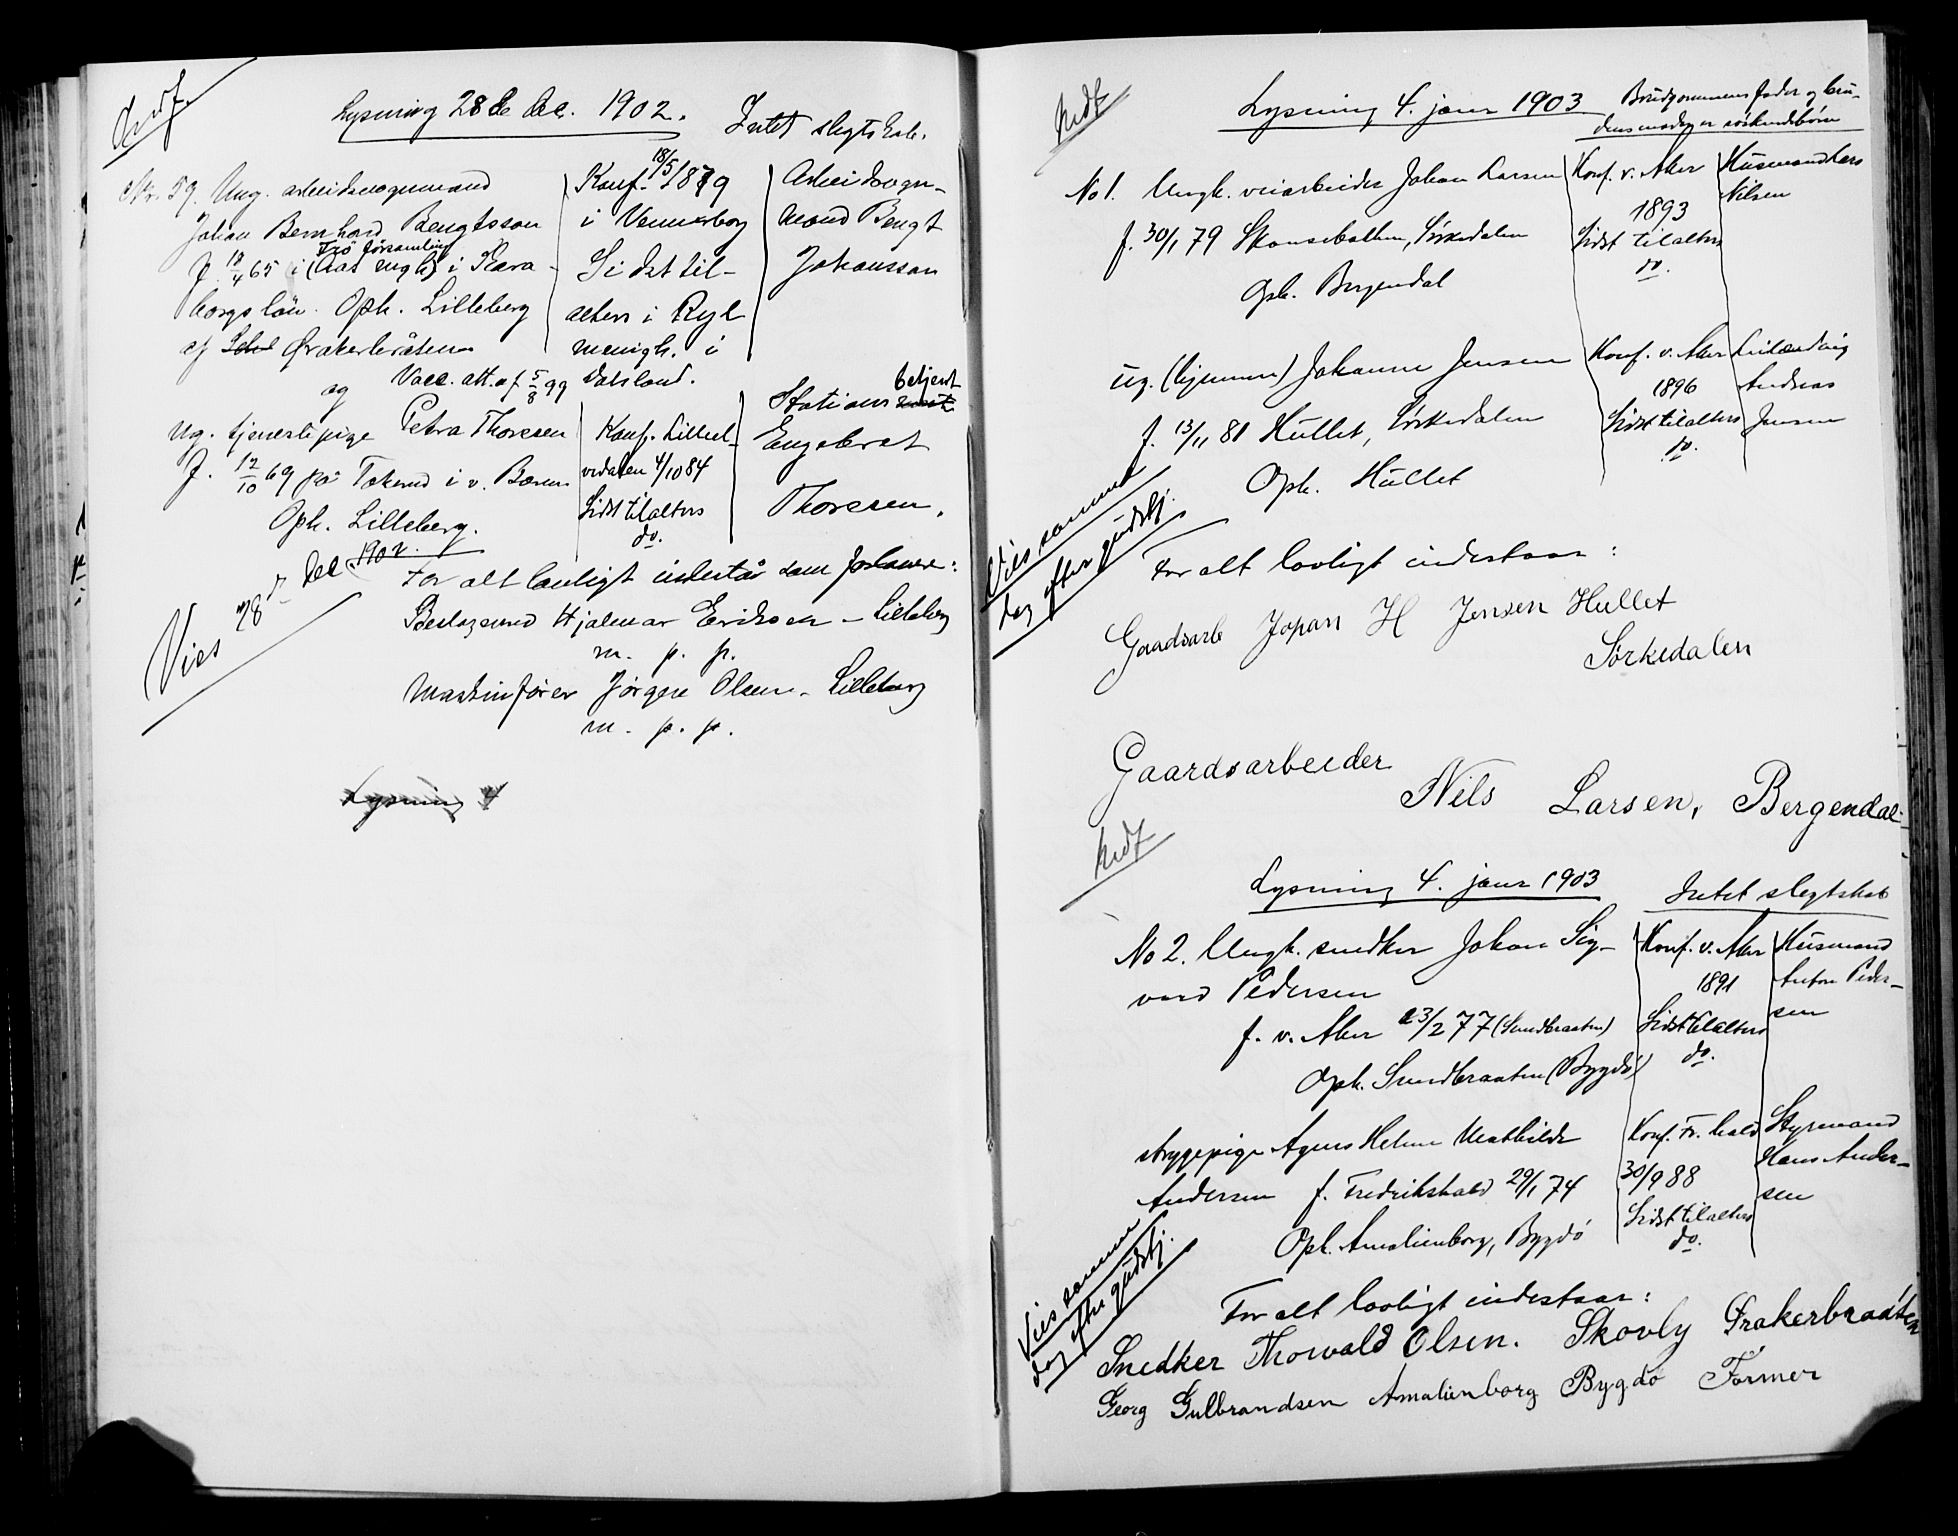 Lysning 28de dec. 1902.
Intet slegtskab.
Nr. 59. Ung. arbeidsvognmand
Johan Bernhard Bengtsson
Frö församling
f. 18/4 65 i ( ) i Skara-
borgs län. Oph. Lilleberg
af Ørakerbråten
og Vacc. att. af 5/8 99
Konf. 18/5 1879
i Vennersborg
Sidst til-
alters i Ryr
menigh. i
Dalsland.
Arbeidsvogn-
mand Bengt
Johansson
ug. tjenestepige Petra Thoresen
f. 12/10 69 på i v. Bærum
Oph. Lilleberg.
Konf. Lilleel-
vedalen 4/10 84
Sidst tilalters
do.
Stations betjent
Engebret
Thoresen.
Vies 28 de dec 1902.
For alt lovligt indestår som forlovere:
Hjalmar Eriksen - Lilleberg
m. p. p.
Maskinfører Jörgen Olsen - Lilleberg
m. p. p.
Lysning 4
Indf.
Lysning 4. janr 1903
Brudgommens fader og bru-
dens moder er söskendebörn
No 1. Ungk. veiarbeider Johan Larsen
f. 30/1 79 Skansebakken, Sörkedalen
Oph. Bergendal
Konf. v. Aker
1893
Sidst tilalters
do.
Husmand Lars
Nilsen
ug. (hjemme) Johanne Jensen
f. 13/11 81 Hullet, Sörkedalen
Oph. Hullet
Konf. v. Aker
1896
Sidst tilalters
do.
Leilænding
Andreas
Jensen
Vies samme
dag efter gudstj.
For alt lovligt indestaar:
Gaadsarb Johan H Jensen Hullet
Sörkedalen
Gaardsarbeider
Nils Larsen, Bergendal
Indf
Lysning 4. janr 1903
Intet slegtskab
No 2. Ungk. snedker Johan Sig-
vard Pedersen
f. v. Aker 23/2 77 (Sundbraaten)
Oph. Sundbraaten (Bygdö)
Konf. v. Aker
1891
Sidst tilalters
do.
Husmand
Anton Peder-
sen
strygepige Agnes Helene Mathilde
Andersen f. Fredrikshald 29/1 74
Oph. Amalienborg, Bygdö
Konf. Fr.hald
30/9 88
Sidst tilalters
do.
Styrmand
Hans Ander-
sen
Vies samme
dag efter gudstj.
For alt lovligt indestaar:
Snedker Thorvald Olsen. Skovly Ørakerbraaten
Georg Gulbrandsen Amalienborg Bygdö Former